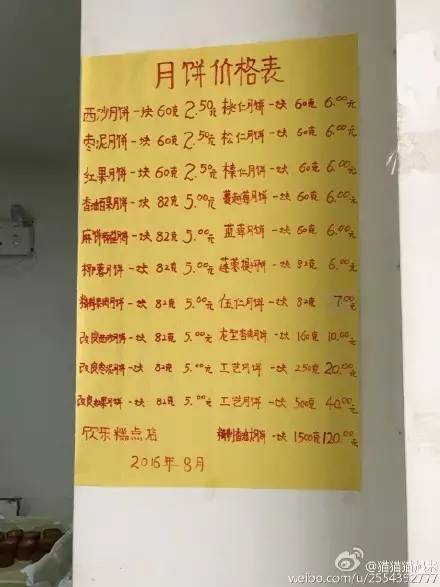 月饼价格表
西沙月饼一块60克2.50元 桃仁月饼一块60克6.00元
枣泥月饼一块60克2.50元 松仁月饼一块60克6.00元
红果月饼一块60克2.50元 榛仁月饼一块60克6.00元
香油百果月饼一块82克5.00元 蔓越莓月饼一块60克6.00元
月饼一块82克5.00元 蓝莓月饼一块60克6.00元
月饼一块82克5.00元 月饼一块82克6.00元
月饼一块82克5.00元 伍仁月饼一块82克7.00元
改良西沙月饼一块82克5.00元 月饼一块160克10.00元
改良枣泥月饼一块82克5.00元 工艺月饼一块250克20.00元
改良红果月饼一块82克5.00元 工艺月饼一块500克40.00元
欣乐糕点店 月饼一块1500克120.00元
2016年8月
weibo.com/u/2554352777